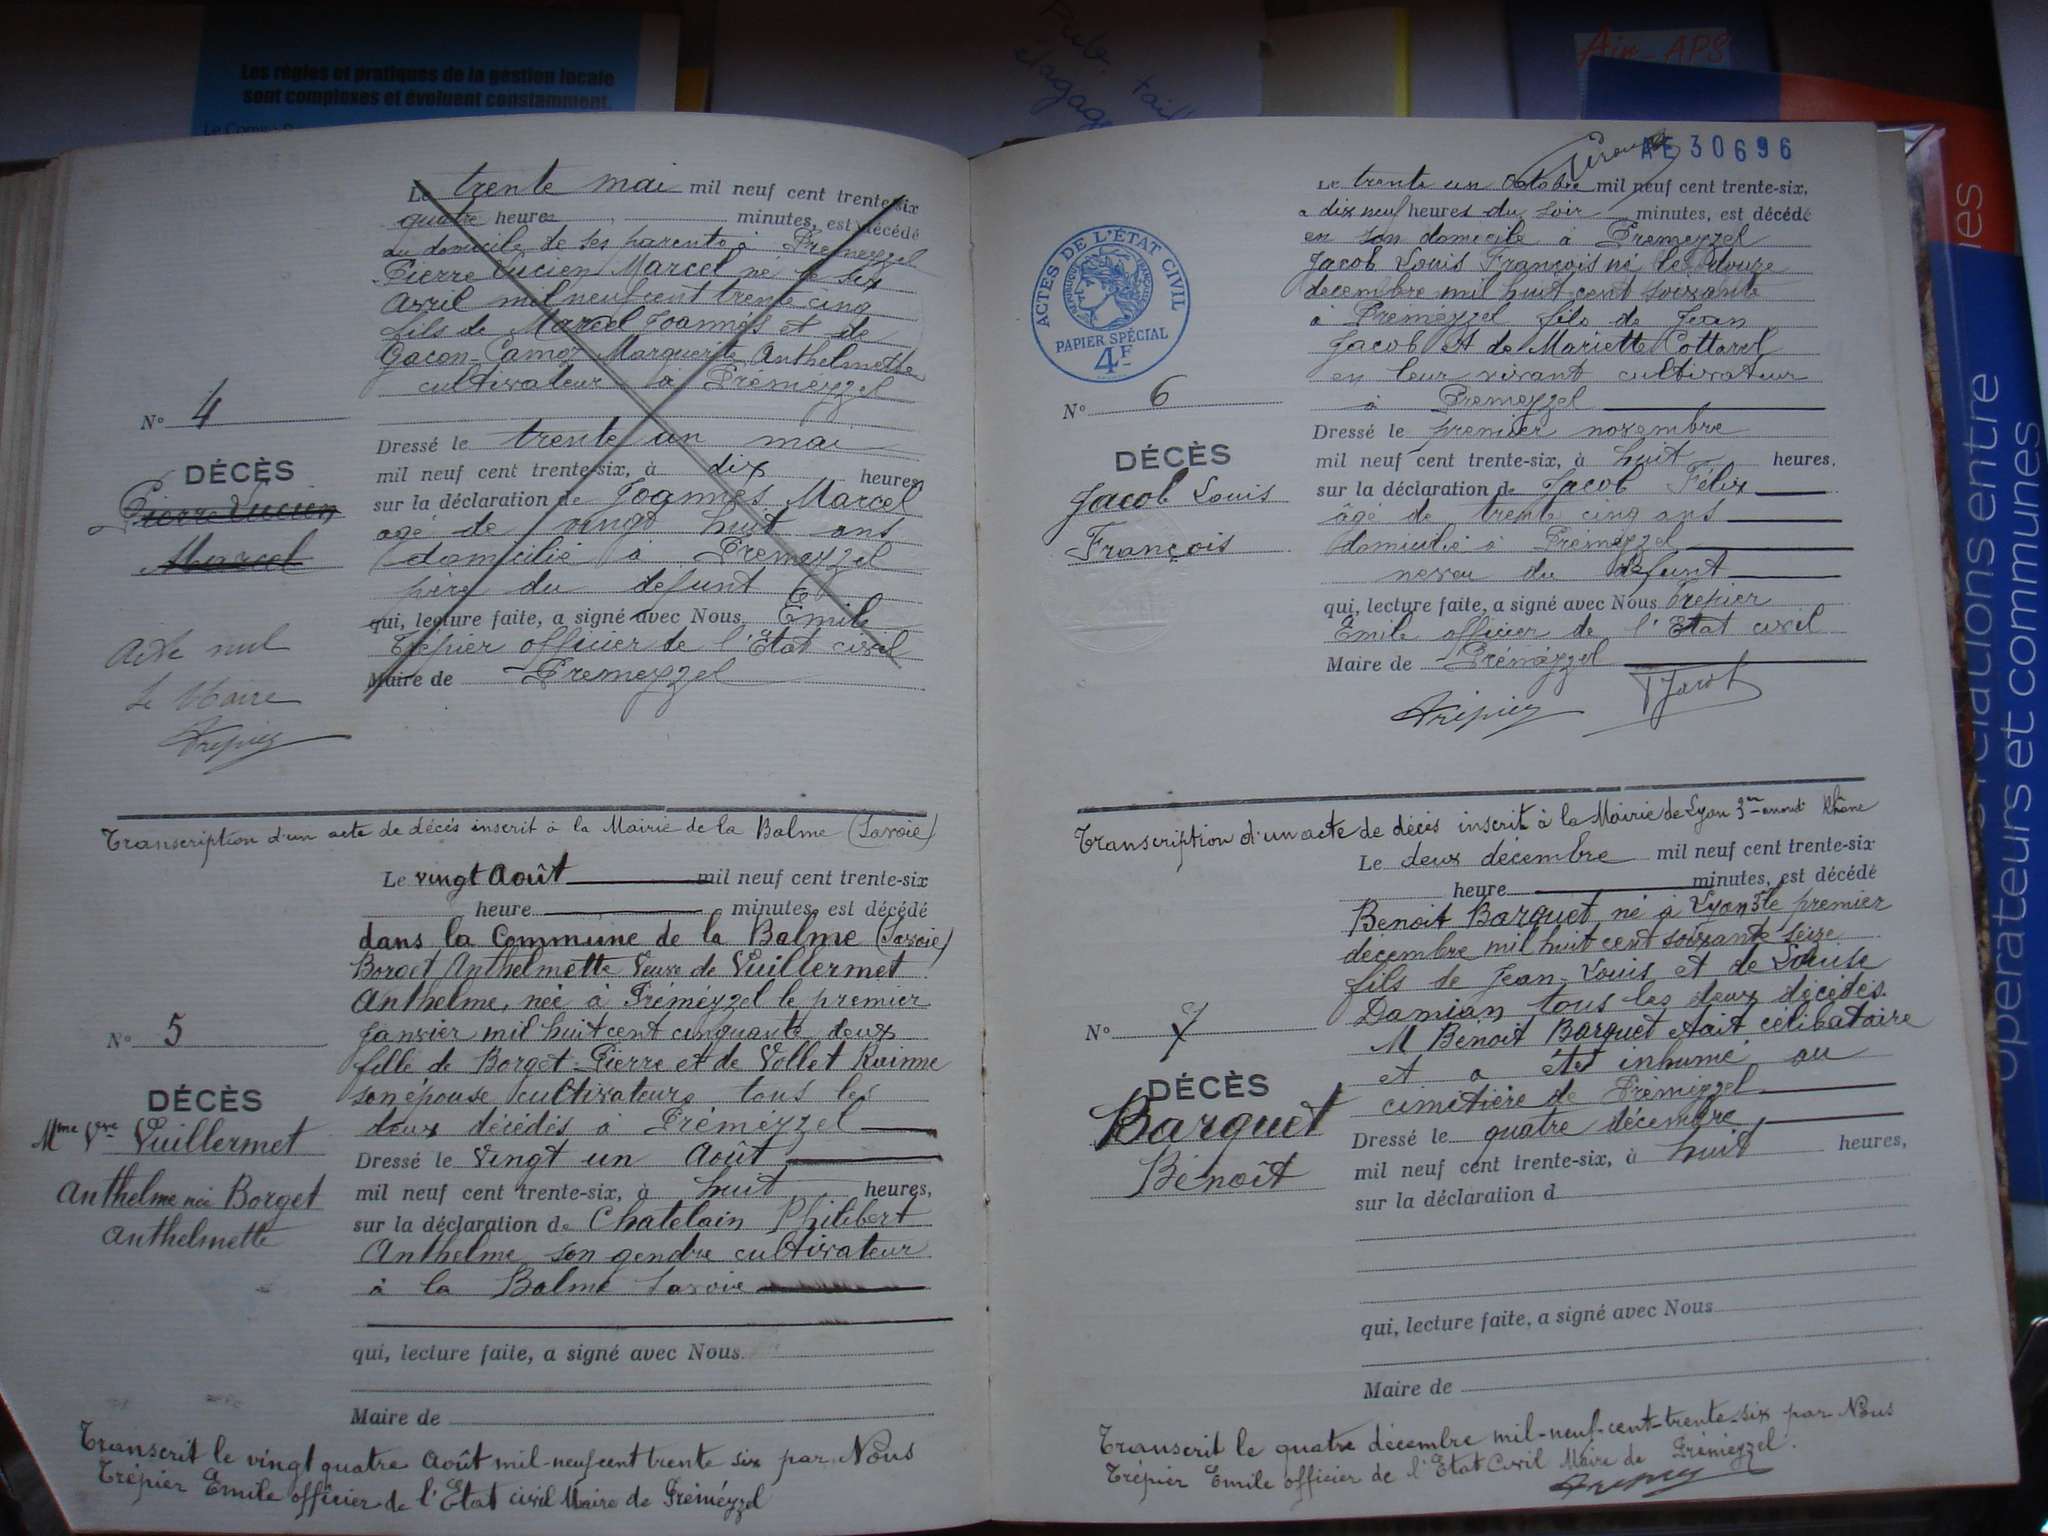 Les règles et pratiques de la gestion locale
sont complexes et évoluent constamment.
Air APS
relations entre
opérateurs et communes
Le trente mai mil neuf cent trente-six
quatre heures minutes, est décédé
au domicile de ses parents à Prémeyzel
Pierre Lucien Marcel né le six
Avril mil neuf cent trente cinq
fils de Marcel Joannès et de
Gacon-Camoz Marguerite Anthelmette
cultivateur à Prémeyzel
N° 4
DÉCÈS
Pierre Lucien
Marcel
Acte nul
Le Maire
Trépier
Dressé le trente un mai
mil neuf cent trente-six, à dix heures
sur la déclaration de Joannès Marcel
agé de vingt huit ans
domicilié à Prémeyzel
père du defunt
qui, lecture faite, a signé avec Nous, Emile
Trépier officier de l'Etat civil
Maire de Prémeyzel
Transcription d'un acte de décès inscrit à la Mairie de la Balme (Savoie)
Le vingt Août mil neuf cent trente-six
heure minutes, est décédé
dans la Commune de la Balme (Savoie)
Borget Anthelmette Veuve de Vuillermet
Anthelme, née à Préméyzel le premier
Janvier mil huit cent cinquante deux
fille de Borget Pierre et de Vollet
son épouse cultivateurs tous les
deux décédés à Préméyzel
N° 5
DÉCÈS
Mme Vve Vuillermet
Anthelme née Borget
Anthelmette
Dressé le vingt un Août
mil neuf cent trente-six, à huit heures,
sur la déclaration de Chatelain Philibert
Anthelme son gendre cultivateur
à la Balme Savoie
qui, lecture faite, a signé avec Nous
Maire de
Transcrit le vingt quatre Août mil-neuf cent trente six par Nous
Trépier Emile officier de l'Etat civil Maire de Préméyzel
AE 30696
ACTES DE L'ÉTAT CIVIL
RÉPUBLIQUE FRANÇAISE
PAPIER SPÉCIAL
4F
Le trente un Octobre mil neuf cent trente-six,
a dix neuf heures du soir minutes, est décédé
en son domicile à Premeyzel
Jacob Louis François né le douze
decembre mil huit cent soixante
à Premeyzel fils de Jean
Jacob et de Mariette Cottarel
en leur vivant cultivateur
à Premeyzel
N° 6
DÉCÈS
Jacob Louis
François
Dressé le premier novembre
mil neuf cent trente-six, à huit heures.
sur la déclaration de Jacob Félix
âgé de trente cinq ans
domicilié à Premeyzel
neveu du defunt
qui, lecture faite, a signé avec Nous Trépier
Emile officier de l'Etat civil
Maire de Préméyzel
Trépier F Jacob
Transcription d'un acte de décès inscrit à la Mairie de Lyon 3em arrondt Rhône
Le deux décembre mil neuf cent trente-six
heure minutes, est décédé
Benoit Barquet né à Lyon 3e le premier
décembre mil huit cent soixante seize
fils de Jean-Louis et de Louise
Damian tous les deux décédés.
M Bénoit Barquet était célibataire
et a été inhumé au
cimetière de Préméyzel
N° 7
DÉCÈS
Barquet
Bénoît
Dressé le quatre décembre
mil neuf cent trente-six, à huit heures,
sur la déclaration d
qui, lecture faite, a signé avec Nous
Maire de
Transcrit le quatre décembre mil-neuf-cent-trente-six par Nous
Trépier Emile officier de l'Etat Civil Maire de Préméyzel.
Trépier